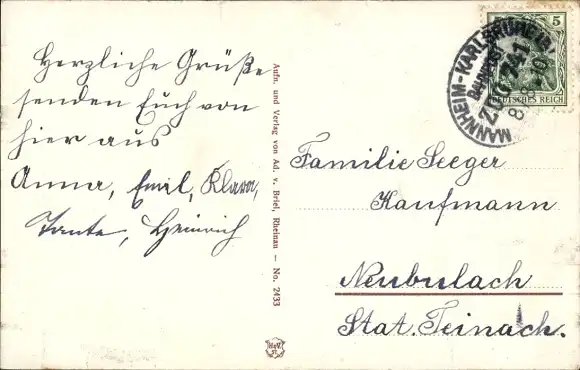 Herzliche Grüße
senden Euch von
hier aus
Anna, Emil, Klara,
Tante, Heinrich
Aufn. und Verlag von Ad. v. Briel, Rheinau — No. 2433
5
DEUTSCHES REICH
MANNHEIM-KARLSRUHE(B)
BAHNPOST
ZUG 741
Familie Seeger
Kaufmann
Neubulach
Stat. Teinach.